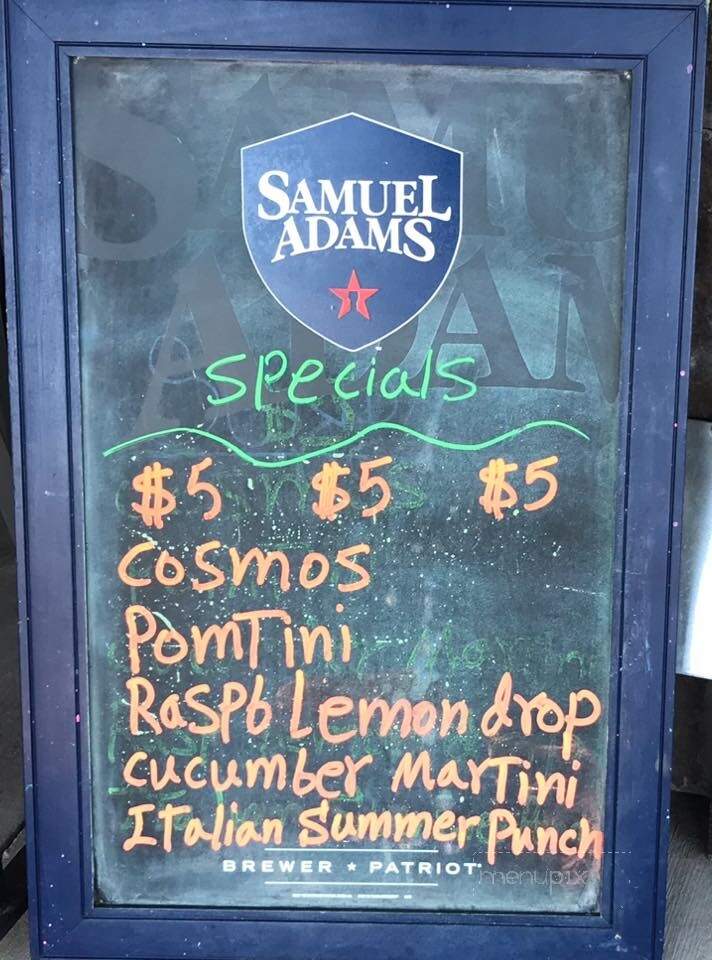 SAMUEL
ADAMS
SAMUEL
ADAMS
specials
$5 $5 $5
Cosmos
PomTini
Raspb Lemon drop
cucumber MarTini
Italian Summer Punch
BREWER ★ PATRIOT
menupix